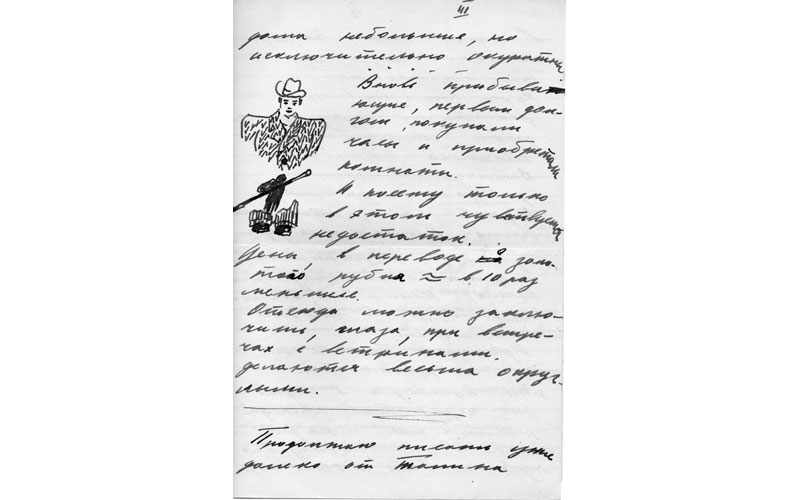 III
дома небольшие, но
исключительно окуратны.
Вновь прибываю-
ющие, первым дол-
гом, покупали
часы и приобретали
комнаты.
И поэтому только
в этом чувствуется
недостаток.
Цены, в переводе на золо-
того рубля ≈ в 10 раз
меньшие.
Отсюда можно заклю-
чить, глаза, при встре-
чах с витринами.
делаются весьма округ-
лыми.
Продолжаю писать уже
далеко от Талина